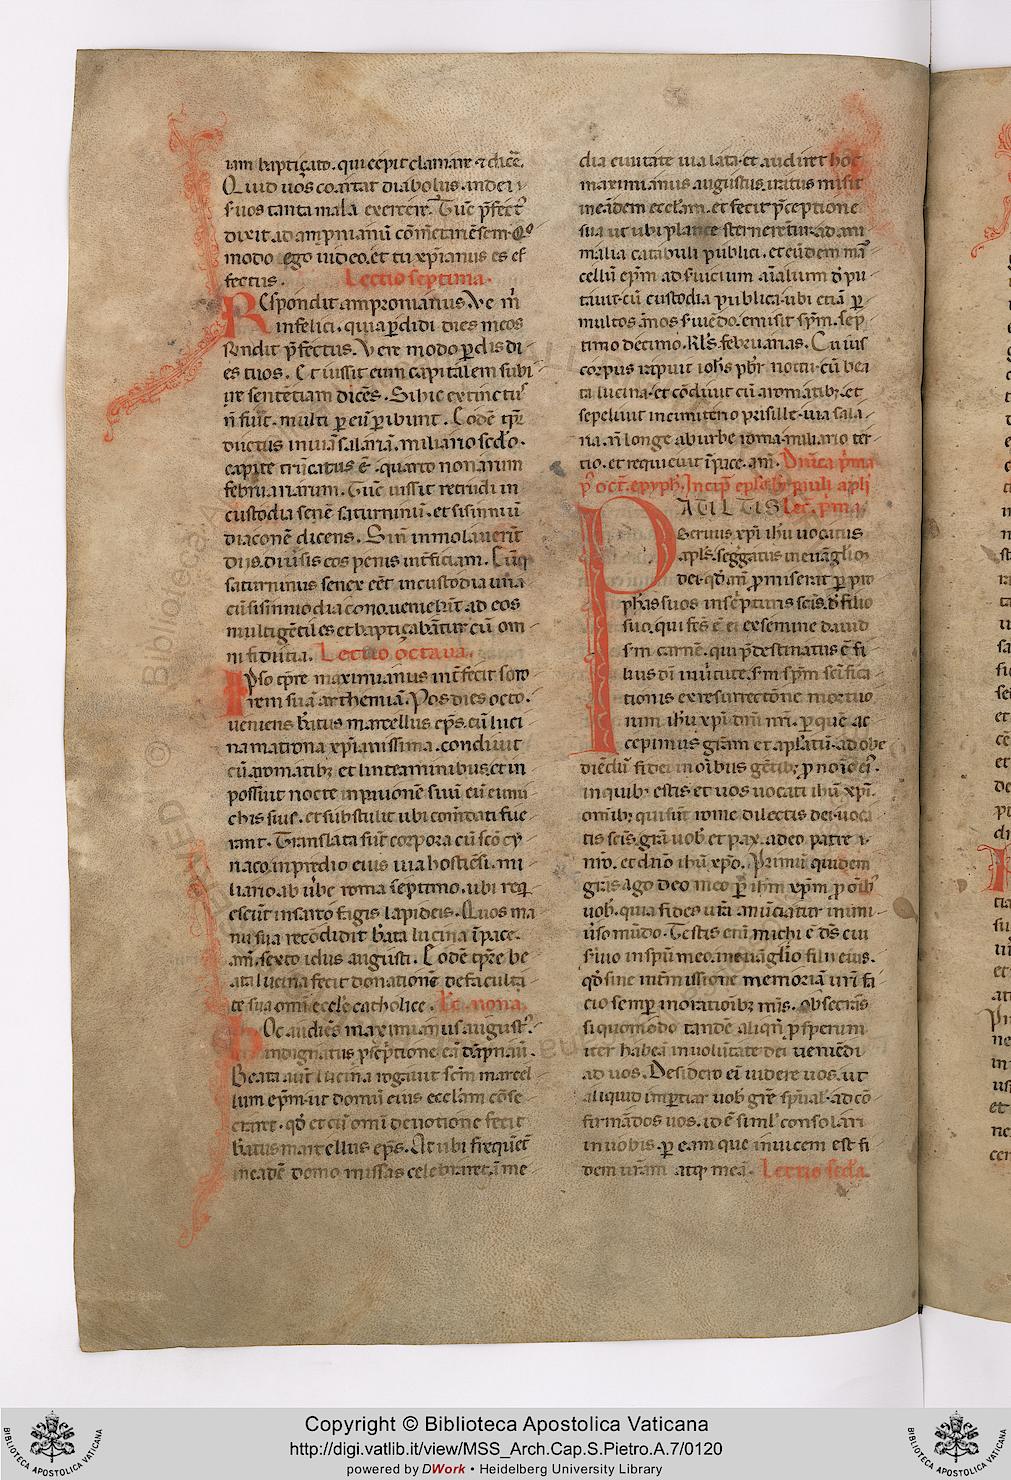 iam baptiçato. qui cepit clamare ⁊ dic̄e.
Quid uos coartat diabolus. inde i
s̄uos tanta mala exercere. Tūc p̄fect᷒
dixit ad ampnianū cōm̄etariēsem. Qͦ
modo ego uideo. et tu xp̄ianus es ef
fectus. Lectio septima.
Respondit ampronianus. Ve m̄
infelici. quia p̄didi dies meos
Rn̄dit p̄fectus. Vere modo ꝑdis di
es tuos. Et iussit eum capitalem subi
ire sentētiam dicēs. Si hic extinctus
n̄ fuīt. multi ꝑ eū ꝑibunt. Eodē tp̄r
ductus in uiā salariā. miliario sc̄do.
capite trūcatus ē. quarto nonarum
februariarum. Tūc iussit retrudi in
custodia senē saturninū. et sisinniū
diaconē dicens. Si n̄ immolauerit̄
diis. diūsis eos penis int̄ficiam. Cūq;
saturninus senex eēt in custodia una
cū sisinnio diacono. ueniebāt ad eos
multi gētiles et baptiçabātur cū om
ni fiducia. Lectio octaua.
Ipso tp̄re maximianus int̄fecit soro
rem suā arthemiā. Pos dies octo.
ueniens b̄atus marcellus ep̄s. cū luci
na matrona xp̄ianissima. condiuit
cū aromatib; et linteaminibus. et in
possiīt nocte in priuonē suū cū eunu
chis suis. et substulit ubi com̄dati fue
rant. Translata sūt corpora cū sc̄o cy
riaco in predio eius uia hostiēsi. mi
liario ab ūbe roma septimo. ubi req
escūt in sarcofagis lapideis. Quos ma
nu sua recōdidit b̄ata lucina ī pace.
am̄. sexto idus augusti. Eodē tp̄re be
ata lucina fecit donationē de faculta
te sua omī eccl̄e catholice. Lc̄. nona.
Hoc audiēs maximianus august᷒.
indignatus ꝑscriptione eā dāpnauī.
Beata aut̄ lucina rogauit sc̄m marcel
lum ep̄m. ut domū eius eccl̄am cōse
craret. qd̄ et cū omī deuotione fecit
b̄atus marcellus ep̄s. At ubi frequēt̄
in eadē domo missas celebraret. ī me
dia ciuitate uia lata. et audiret hoc
maximianus augustus. iratus misit
in eādem eccl̄am. et fecit p̄ceptione
sua ut ubi plance sternerētur. ad ani
malia catabuli publici. et eūdem mar
cellū ep̄m ad s̄uicium aīalium d̄pu
tauit. cū custodia publica. ubi etiā ꝑ
multos ānos s̄uiēdo. emisit sp̄m. sep
timo decimo. kl̄s. februarias. Cuius
corpus rapuit ioh̄s pb̄r noctu. cū bea
ta lucina. et cōdiuit cū aromatib;. et
sepeliuit in cimiterio prisille. uia sala
ria. n̄ longe ab urbe roma. miliario ter
tio. et requieuit ī pace. am̄. Dn̄ica p̄ma
p̄ oct̄. epyph̄. Incip̄ epl̄a b̄i pauli apl̄i
PAULUS Lec̄. p̄ma.
seruus xp̄i ih̄u uocatus
apl̄s. seggatus in euāglio
dei. qd̄ an̄ ꝓmiserat ꝑ pro
phetas suos in sc̄pturis sc̄is. d̄ filio
suo. qui fc̄s ē ei ex semine dauid
s̄m carnē. qui p̄destinatus ē fi
lius dī in ūtute. s̄m sp̄m sc̄ifica
tionis ex resurrectōne mortuo
rum ih̄u xp̄i dn̄i nr̄i. ꝑ quē ac
cepimus gr̄am et apl̄atū. ad obe
diēdū fidei in oīb᷒us gētib; ꝓ noīe ei᷒.
in quib; estis et uos uocati ih̄u xp̄i.
om̄ib; qui sūt rome dilectis dei. uoca
tis sc̄is. gr̄a uob̄ et pax. a deo patre
nr̄o. et dn̄o ih̄u xp̄o. Primū quidem
gr̄as ago deo meo ꝑ ih̄m xp̄m ꝓ oīb᷒
uob̄. quia fides ur̄a anūciatur in uni
ūso mūdo. Testis enī michi ē d̄s cui
s̄uio in sp̄u meo. in euāglio filii eius.
qd̄ sine int̄missione memoriā ur̄i fa
cio semp̄ in orationib; meis. Obsecrās
si quomodo tandē aliqn̄ ꝓsperum
iter habeā in uolūtate dei ueniēdi
ad uos. Desidero enī uidere uos. ut
aliquid imꝑtiar uob̄ gr̄e sp̄ual᷒. ad cō
firmādos uos. id ē siml̄ consolari
in uobis. ꝑ eam que inuicem est fi
dem ur̄am atq; meā. Lectio sc̄da.
Copyright © Biblioteca Apostolica Vaticana
http://digi.vatlib.it/view/MSS_Arch.Cap.S.Pietro.A.7/0120
powered by DWork • Heidelberg University Library
BIBLIOTECA APOSTOLICA VATICANA
BIBLIOTECA APOSTOLICA VATICANA